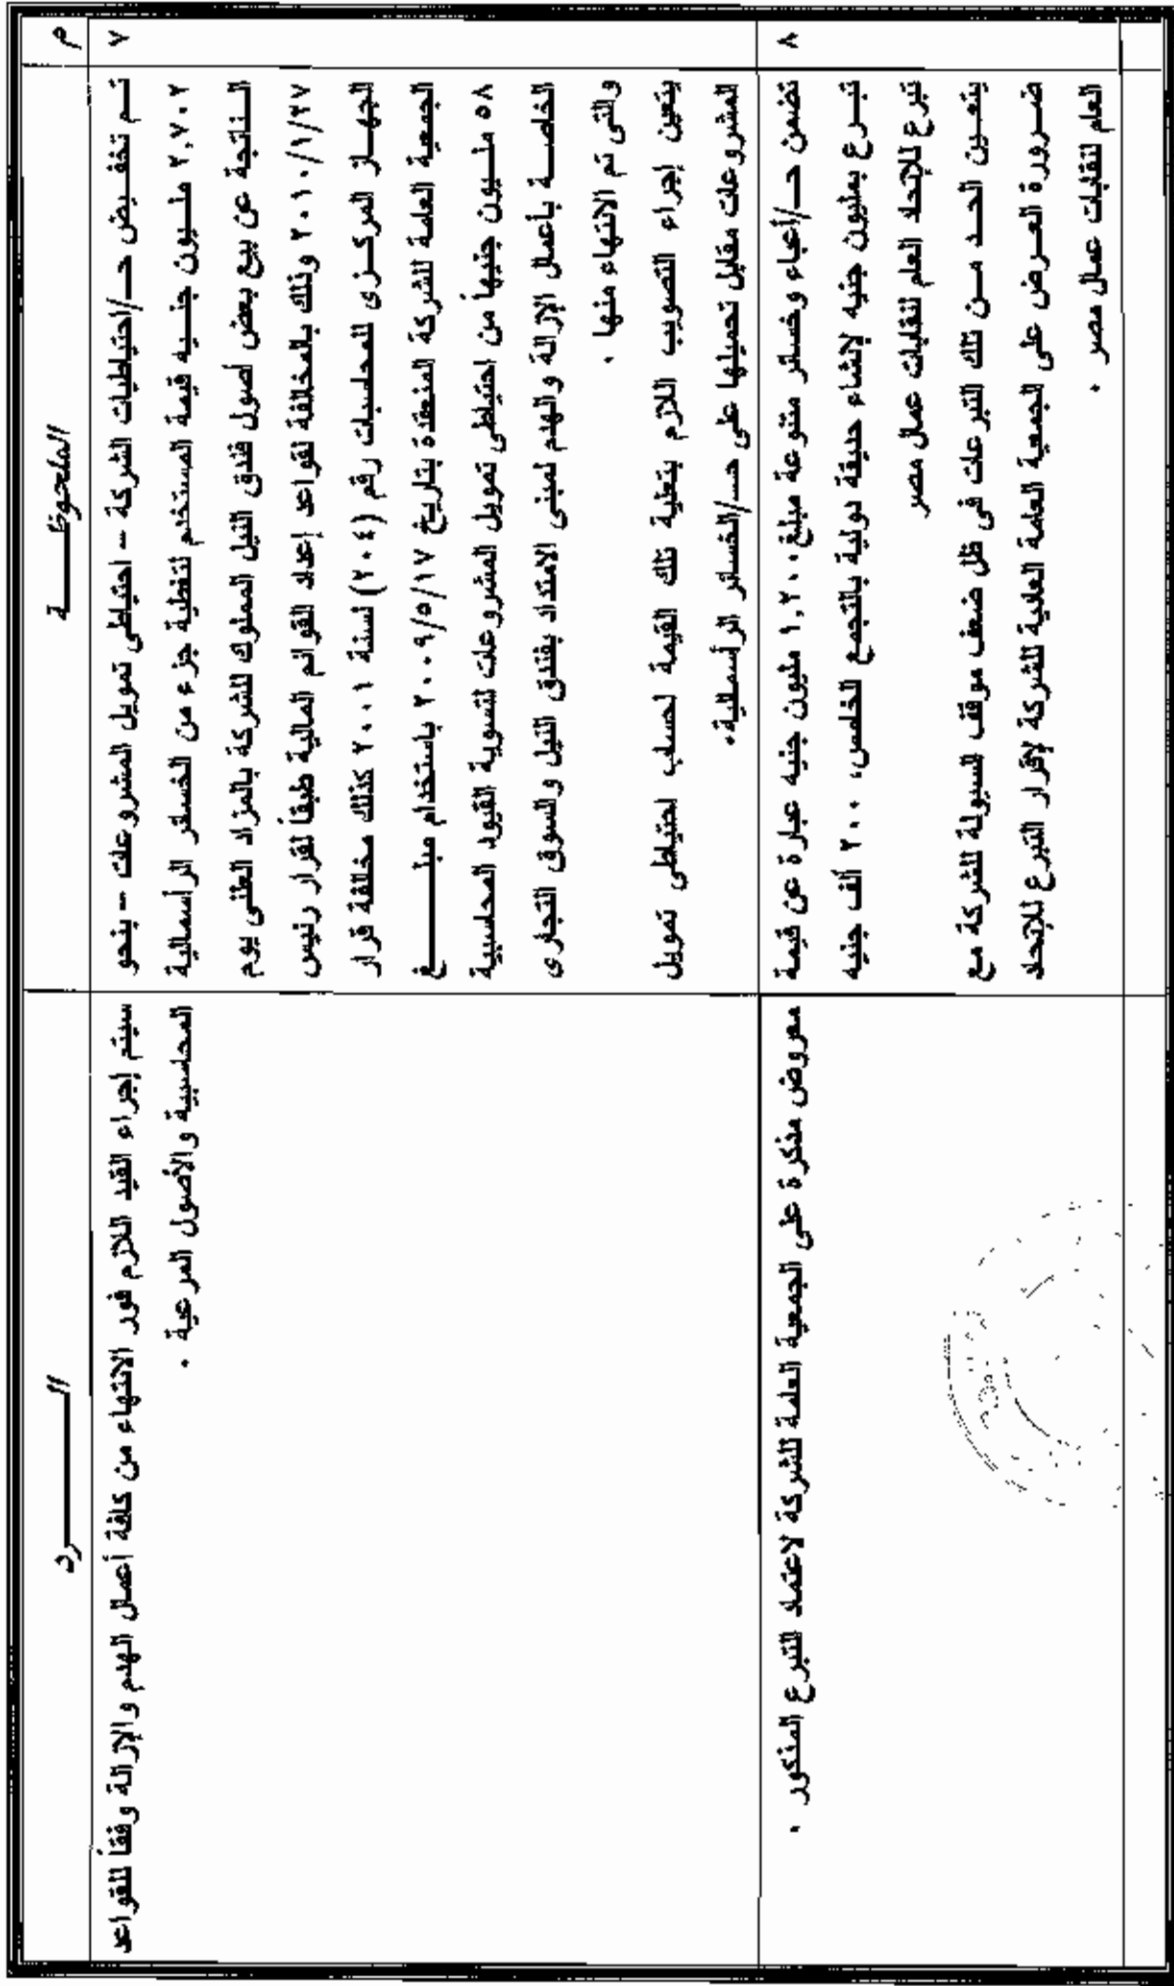 م
الملحوظــــة
الــــرد
٧
تـم تخفـيض حـ/احتياطيات الشركة – احتياطى تمويل المشروعات – بنحو
٢,٧٠٢ ملـيون جنـيه قيمة المستخدم لتغطية جزء من الخسائر الرأسمالية
الـناتجة عن بيع بعض أصول فندق النيل المملوك للشركة بالمزاد العلنى يوم
٢٠١٠/١/٢٧ وذلك بالمخالفة لقواعد إعداد القوائم المالية طبقاً لقرار رئيس
الجهـاز المركـزى للمحاسبات رقم (٢٠٤) لسنة ٢٠٠١ كذلك مخالفة قرار
الجمعية العامة للشركة المنعقدة بتاريخ ٢٠٠٩/٥/١٧ باستخدام مبلـــــغ
٥٨ ملـيون جنيهاً من احتياطى تمويل المشروعات لتسوية القيود المحاسبية
الخاصــة بأعمال الإزالة والهدم لمبنى الامتداد بفندق النيل والسوق التجارى
والتى تم الانتهاء منها .
يتعين إجراء التصويب اللازم بتعلية تلك القيمة لحساب احتياطى تمويل
المشروعات مقابل تحميلها على حـ/الخسائر الرأسمالية.
سيتم إجراء القيد اللازم فور الانتهاء من كافة أعمال الهدم والإزالة وفقاً للقواعد
المحاسبية والأصول المرعية .
٨
تضمن حــ/أعباء وخسائر متنوعة مبلغ ١,٢٠٠ مليون جنيه عبارة عن قيمة
تبـرع بمليون جنيه لإنشاء حديقة دولية بالتجمع الخامس، ٢٠٠ ألف جنيه
تبرع للإتحاد العام لنقابات عمال مصر
يتعـين الحـد مـن تلك التبرعات فى ظل ضعف موقف السيولة للشركة مع
ضـرورة العـرض على الجمعية العامة العادية للشركة لإقرار التبرع للإتحاد
العام لنقابات عمال مصر .
معروض مذكرة على الجمعية العامة للشركة لاعتماد التبرع المذكور .